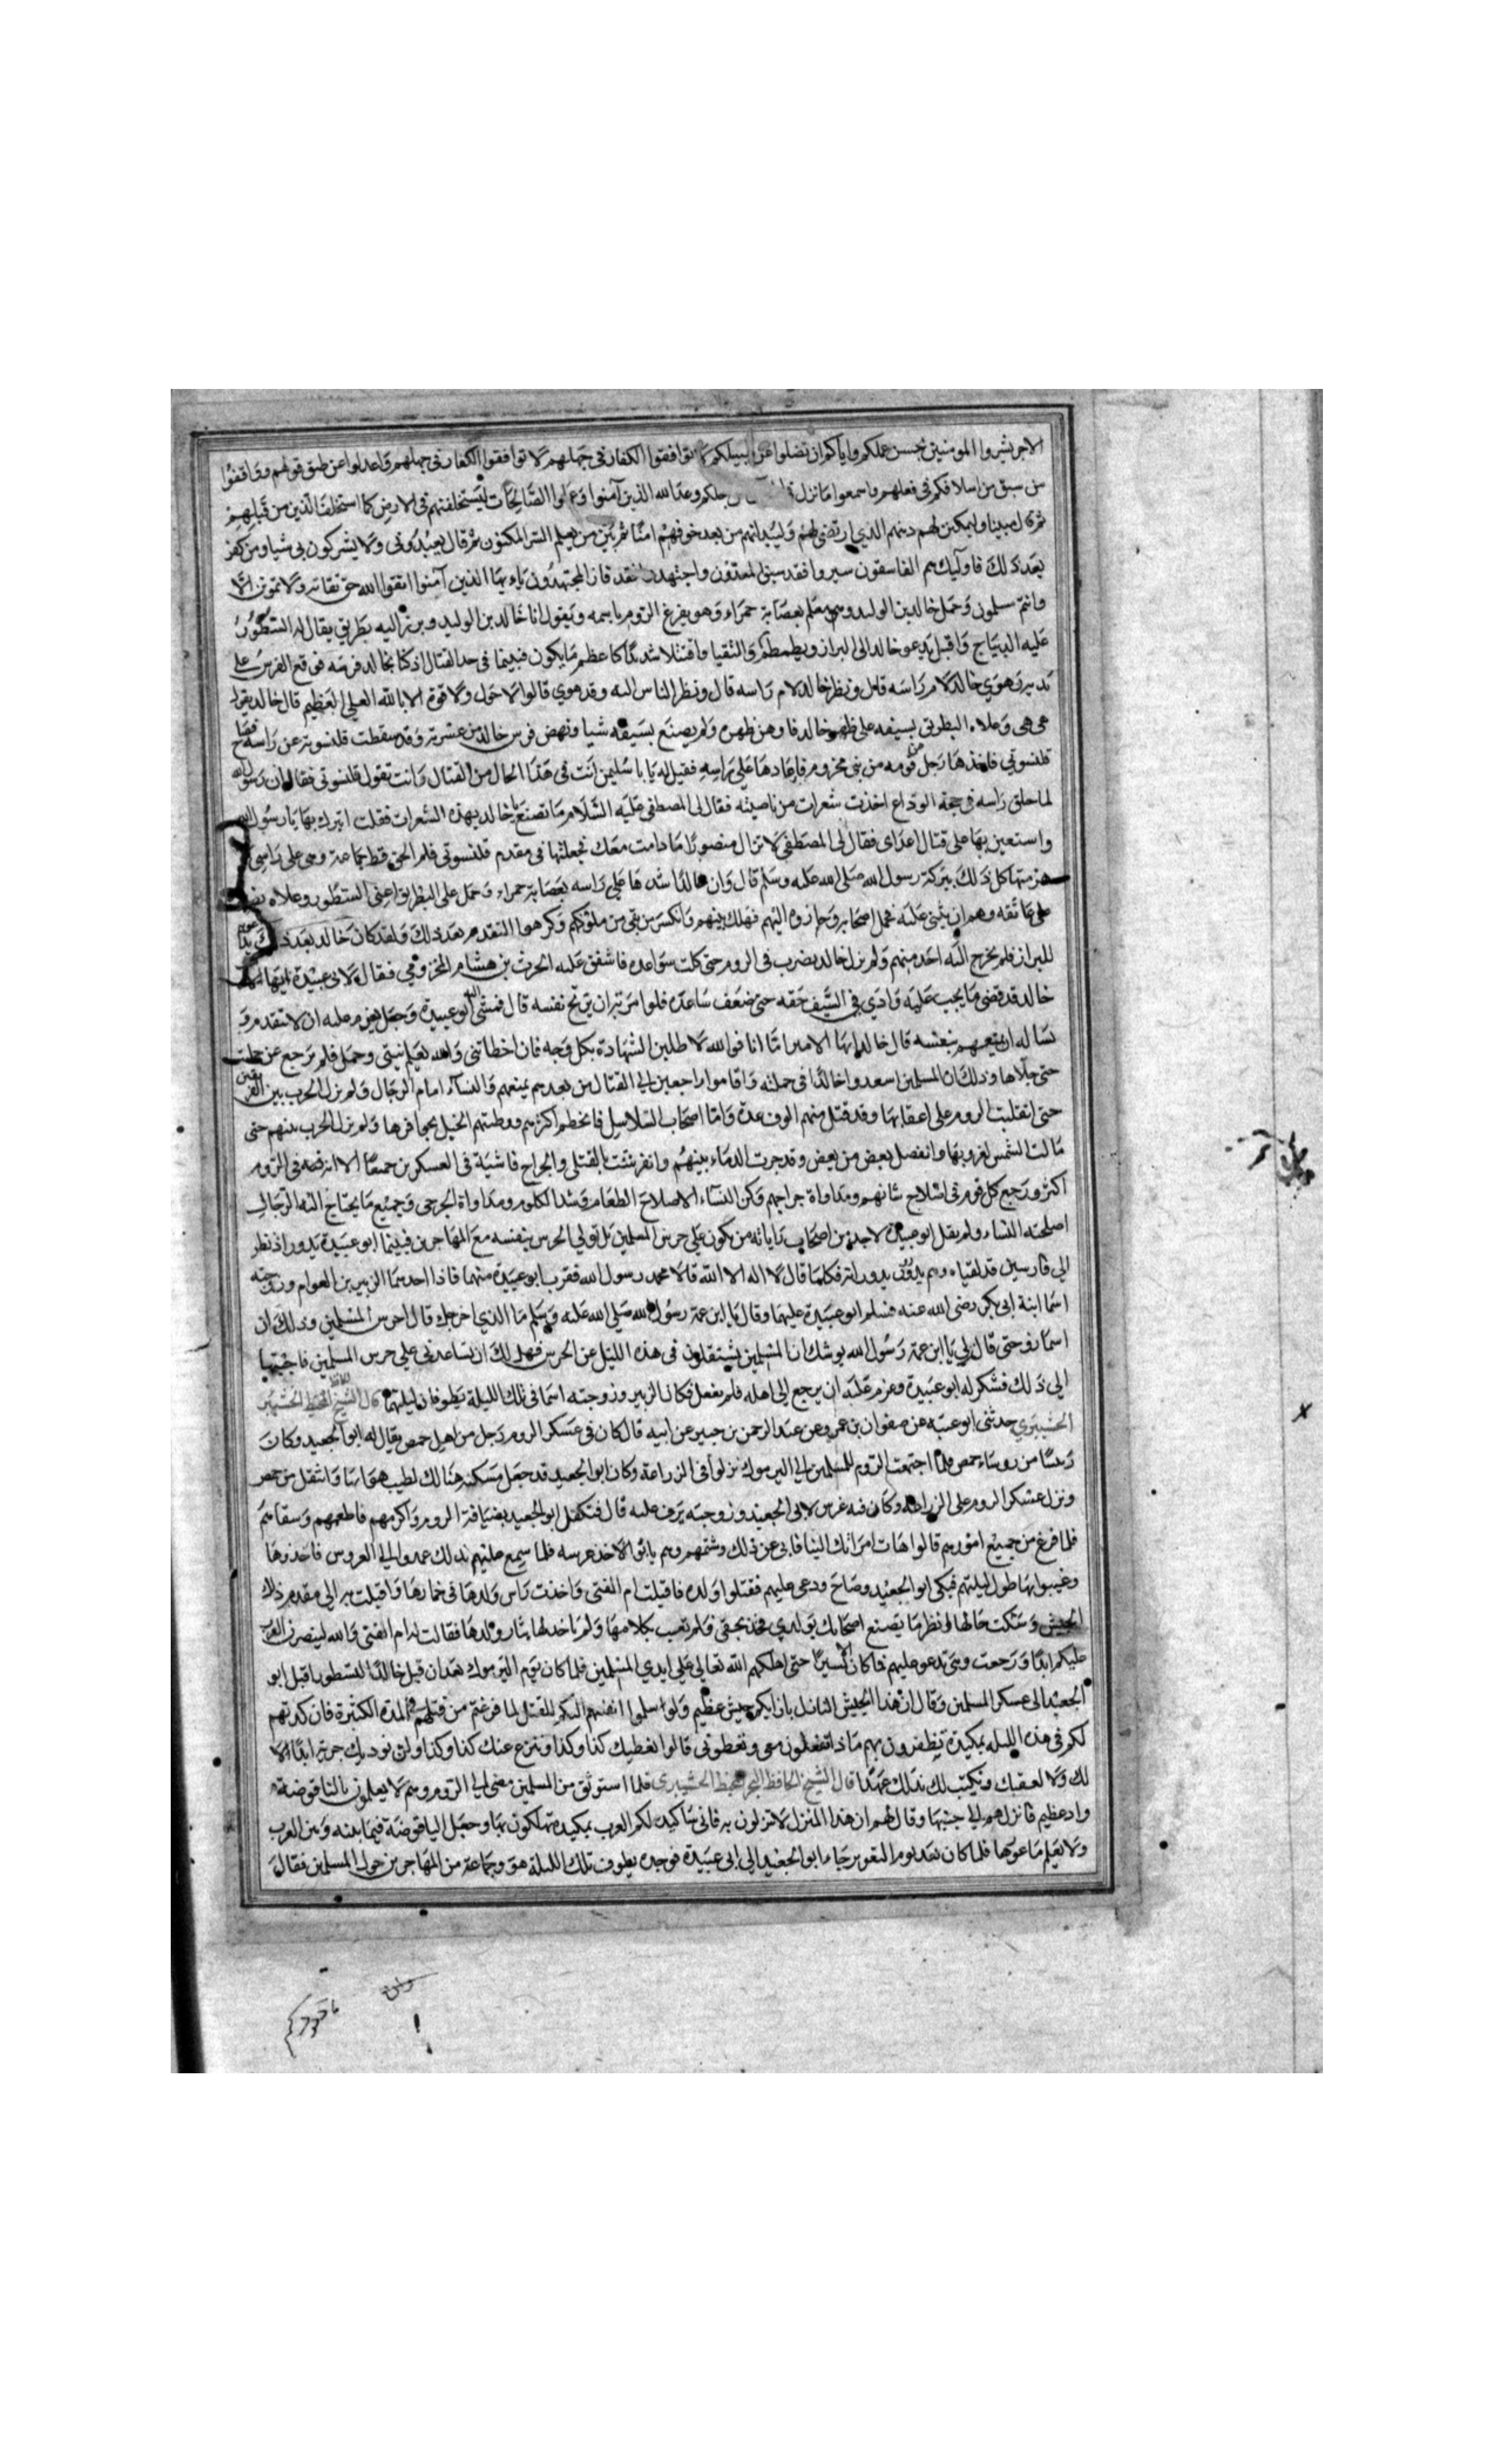 الاجر بشروا المومنين بحسن عملكم واياكم ان تضلوا عن سبيلكم لا توافقوا الكفار في جهلهم لا توافقوا الكفار في جهلهم واعدلوا عن طريق قولهم ووافقوا
من سبق من اسلافكم في فعلهم واسمعوا ما نزل جلكم وعد الله الذين آمنوا وعملوا الصالحات ليستخلفنهم في الارض كما استخلف الذين من قبلهم
ثم قال مبينا وليمكنن لهم دينهم الذي ارتضى لهم وليبدلنهم من بعد خوفهم امنا ثم بين من يعلم السر المكنون ثم قال يعبدونني ولا يشركون بي شيا ومن كفر
بعد ذلك فاوليك هم الفاسقون سيروا فقد سبق واجتهدوا فقد فاز المجتهدون يايها الذين آمنوا اتقوا الله حق تقاته ولا تموتن الا
وانتم مسلمون وحمل خالد بن الوليد وهو معلم بعصابة حمراء وهو يفزع الروم باسمه ويقول انا خالد بن الوليد وبرز اليه بطريق يقال له النسطور
عليه الديباج واقبل يدعو خالدا الى البراز ويطمطم والتقيا واقتتلا شديدا كاعظم ما يكون فبينما في حد القتال اذ كبا بخالد فرسه فوقع الفرس على
يديه وهوي خالد لام راسه قال ونظر خالد لام راسه قال ونظر الناس اليه وقد هوي قالوا لا حول ولا قوة الا بالله العلي العظيم قال خالد يقول
هي هي وعلاه البطريق بسيفه على ظهر خالد فاوهن ظهره ولم يصنع بسيفه شيا ونهض فرس خالد من عثرته وقد سقطت قلنسوته عن راسه فصاح
قلنسوتي فاخذها رجل من قومه من بني مخزوم فاعادها على راسه فقيل له يا ابا سليمن انت في هذا الحال من القتال وانت تقول قلنسوتي فقال ان رسول الله
لما حلق راسه في حجة الوداع اخذت شعرات من ناصيته فقال لي المصطفى عليه السلام ما تصنع يا خالد بهذه الشعرات فقلت اتبرك بها يا رسول الله
واستعين بها على قتال اعداي فقال لي المصطفى لا تزال منصورا ما دامت معك فجعلتها في مقدم قلنسوتي فلم الق قط جماعة وهي على راسي الا
هزمتها كل ذلك ببركة رسول الله صلى الله عليه وسلم قال وان خالدا شدها على راسه بعصابة حمراء وحمل على البطريق اعني النسطور وعلاه
على عاتقه وهم ان يثني عليه فحمل اصحابه وحازوه اليهم فهلك بينهم وانكسر من بقي من ملوكهم وكرهوا التقدم بعد ذلك ولقد كان خالد بعد ذلك
للبراز فلم يخرج اليه احد منهم ولم يزل خالد يضرب في الروم حتى كلت سواعده فاشفق عليه الحرث بن هشام المخزومي فقال لابي عبيدة ايها
خالد قد قضى ما يجب عليه وادي في السيف حقه حتى ضعف ساعده فلو امرته ان يريح نفسه قال فمشى اليه ابو عبيدة وجعل يعزم عليه ان لا يتقدم و
بنفسه قال خالد ايها الامير اما انا فوالله لا طلبن الشهادة بكل وجه فان اخطاتني والله يعلم نيتي وحمل فلم يرجع عن حملته
حتى جلاها وذلك ان المسلمين اسعدوا خالدا في حملته واقاموا راجعين الي القتال من بعدهم يمنعهم والنساء امام الرجال ولم يزل الحرب بين الفريقين
حتى انقلبت الروم على اعقابها وقد قتل منهم الوف عدة واما اصحاب السلاسل فانحطم اكثرهم ووطيتهم الخيل بحوافرها ولم يزل الحرب بينهم حتى
مالت الشمس لغروبها وانفصل بعض من بعض وقد جرت الدماء بينهم وانفرشت بالقتلى والجراح فاشية في العسكرين جميعا الا انه في الروم
اكثر ورجع كل قوم في اصلاح شانهم ومداواة جراحهم وكن النساء الاصلاح الطعام وشد الكلوم ومداواة الجرحى وجميع ما يحتاج اليه الرجال
اصلحته النساء ولم يقل ابو عبيدة لاحد من اصحاب راياته من يكون على حرس المسلمين بل تولي الحرس بنفسه مع المهاجرين فبينما ابو عبيدة يدور اذ نظر
الي فارسين قد لقياه وهم يدورون بدورانه فكلما قال لا اله الا الله قالا محمد رسول الله فقرب ابو عبيدة منهما فاذا احدهما الزبير بن العوام وزوجته
اسما ابنة ابي بكر رضى الله عنه فسلم ابو عبيدة عليهما وقال يا ابن عمة رسول الله صلى الله عليه وسلم ما الذي اخرجك قال احرس المسلمين وذلك ان
اسما زوجتي قال لي يا ابن عمة رسول الله يوشك ان المسلمين يشتغلون في هذه الليل عن الحرس فهل لك ان تساعدني على حرس المسلمين فاجبتها
الي ذلك فشكر له ابو عبيدة وعزم عليه ان يرجع الى اهله فلم يفعل فكان الزبير وزوجته اسما في تلك الليلة يطوفان ليلتهما قال الشيخ
حدثني ابو عن صفوان بن عمرو عن عبد الرحمن بن جبير عن ابيه قال كان في عسكر الروم رجل من اهل حمص يقال له ابو الجعيد وكان
رييسا من روساء حمص فلما اجتمعت الروم للمسلمين الي اليرموك نزلوا في الزراعة وكان ابو الجعيد قد جعل مسكنه هنالك لطيب هوايها وانتقل من حمص
ونزل عسكر الروم على الزراعة وكان فيه عرس لابي الجعيد وزوجته يزف عليه قال فتكفل ابو الجعيد بضيافة الروم واكرمهم فاطعمهم وسقاهم
فلما فرغ من جميع امورهم قالوا هات امراتك الينا فابى عن ذلك وشتمهم وهم يابوا الا اخذ عرسه فلما سمع عليهم بذلك عمدوا الي العروس فاخذوها
وعبثوا بها طول ليلتهم فبكى ابو الجعيد وصاح ودعى عليهم فقتلوا ولده فاقبلت ام الفتى واخذت راس ولدها في خمارها واقبلت به الى مقدم ذلك
الجيش وشكت حالها وانظر ما يصنع اصحابك بولدي فخذ بحقي فلم يعب بكلامها ولم ياخذ لها بثار ولدها فقالت له ام الفتى والله لينصرن العرب
عليكم ابدا ورجعت وهي تدعو عليهم فما كان الا يسيرا حتى اهلكهم الله تعالى على ايدي المسلمين فلما كان يوم اليرموك بعد ان قتل خالد النسطور اقبل ابو
الجعيد الى عسكر المسلمين وقال ان هذا الجيش النازل بازايكم جيش عظيم ولو سلموا انفسهم اليكم للقتل لما فرغتم من قتلهم في المدة الكثيرة فان كدتهم
لكم في هذه الليلة بمكيدة تظفرون بهم ماذا تفعلون معي وتعطوني قالوا نعطيك كذا وكذا وننزع عنك كذا وكذا ولن نوديك جزية ابدا الا
لك ولا لعقبك ونكتب لك بذلك عهدا قال الشيخ الحافظ فلما استوثق من المسلمين مضى الي الروم وهم لا يعلمون بالناقوصة
واد عظيم فانزلهم الي جنبها وقال لهم ان هذا المنزل لا تزلون به فاني ساكيد لكم العرب بمكيدة تهلكون بها وجعل الياقوصة فيما بينه وبين العرب
ولا يعلم ما غورها فلما كان بعد يوم التعوير جاء ابو الجعيد الي ابي عبيدة فوجده يطوف تلك الليلة هو وجماعة من المهاجرين حول المسلمين فقال